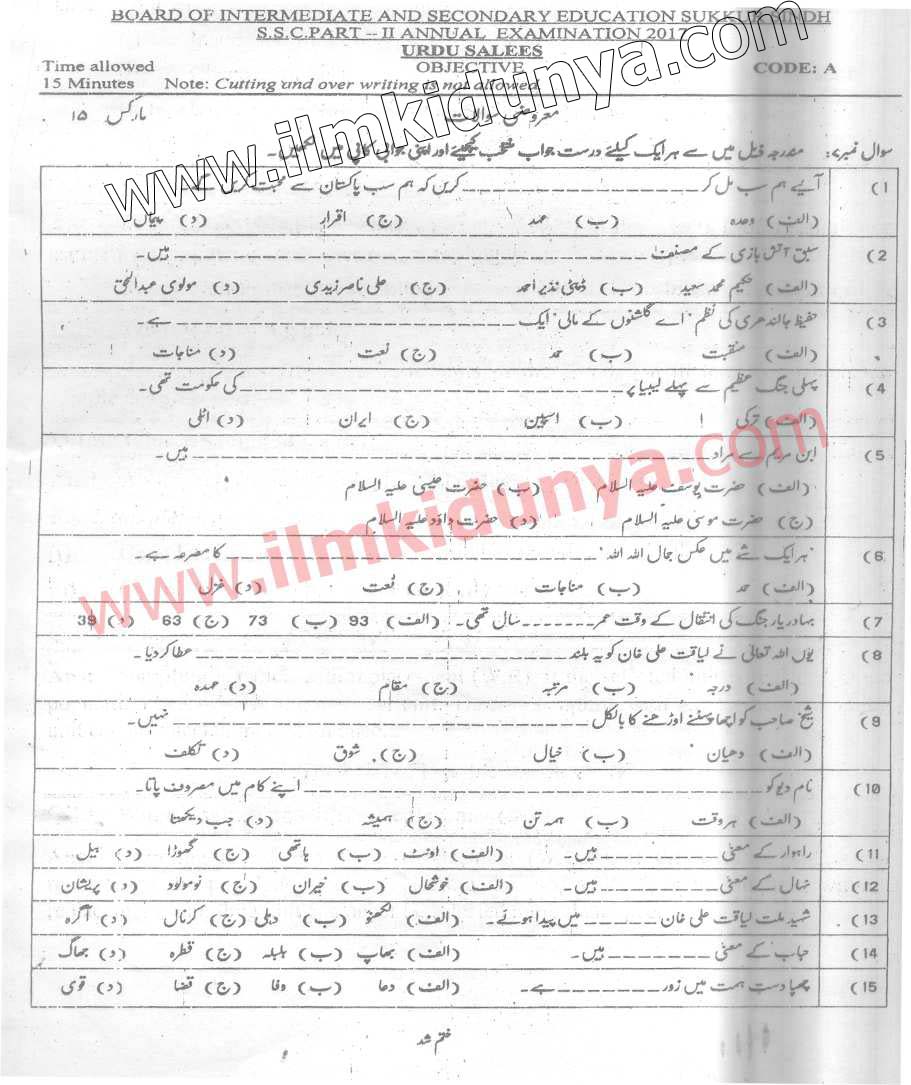 BOARD OF INTERMEDIATE AND SECONDARY EDUCATION SUKKUR SINDH
S.S.C.PART -- II ANNUAL EXAMINATION 2017
URDU SALEES
Time allowed OBJECTIVE CODE: A
15 Minutes Note: Cutting and over writing is not allowed.
معروضی سوالات مارکس ۱۵
سوال نمبر۷: مندرجہ ذیل میں سے ہر ایک کیلئے درست جواب منتخب کیجئیے اور اپنی جوابی کاپی میں لکھیں۔
1) آیئے ہم سب مل کر ــــــــــــــــ کریں کہ ہم سب پاکستان سے محبت کریں گے۔
(الف) وعدہ (ب) عہد (ج) اقرار (د) پیماں
2) سبق آتش بازی کے مصنف ــــــــــــــــ ہیں۔
(الف) حکیم محمد سعید (ب) ڈپٹی نذیر احمد (ج) علی ناصر زیدی (د) مولوی عبدالحق
3) حفیظ جالندھری کی نظم "اے گلشنوں کے مالی" ایک ــــــــــــــــ ہے۔
(الف) منقبت (ب) حمد (ج) نعت (د) مناجات
4) پہلی جنگ عظیم سے پہلے لیبیا پر ــــــــــــــــ کی حکومت تھی۔
(الف) ترکی (ب) اسپین (ج) ایران (د) اٹلی
5) ابن مریم سے مراد ــــــــــــــــ ہیں۔
(الف) حضرت یوسف علیہ السلام (ب) حضرت عیسیٰ علیہ السلام
(ج) حضرت موسی علیہ السلام (د) حضرت داؤد علیہ السلام
6) "ہر ایک شے میں عکس جمال اللہ اللہ" ــــــــــــــــ کا مصرعہ ہے۔
(الف) حمد (ب) مناجات (ج) نعت (د) غزل
7) بہادر یار جنگ کی انتقال کے وقت عمر ــــــــ سال تھی۔ (الف) 93 (ب) 73 (ج) 63 (د) 39
8) یوں اللہ تعالیٰ نے لیاقت علی خان کو یہ بلند ــــــــــــــــ عطا کر دیا۔
(الف) درجہ (ب) مرتبہ (ج) مقام (د) عہدہ
9) شیخ صاحب کو اچھا پہننے اوڑھنے کا بالکل ــــــــــــــــ نہیں۔
(الف) دھیان (ب) خیال (ج) شوق (د) تکلف
10) نام دیو کو ــــــــــــــــ اپنے کام میں مصروف پاتا۔
(الف) ہر وقت (ب) ہمہ تن (ج) ہمیشہ (د) جب دیکھتا
11) راہوار کے معنی ــــــــ ہیں۔ (الف) اونٹ (ب) ہاتھی (ج) گھوڑا (د) بیل
12) نہال کے معنی ــــــــ ہیں۔ (الف) خوشحال (ب) حیران (ج) نومولود (د) پریشان
13) شہید ملت لیاقت علی خان ــــــــ میں پیدا ہوئے۔ (الف) لکھنو (ب) دہلی (ج) کرنال (د) آگرہ
14) حباب کے معنی ــــــــ ہیں۔ (الف) بھاپ (ب) بلبلہ (ج) قطرہ (د) جھاگ
15) چھپا دست ہمت میں زور ــــــــ ہے۔ (الف) دعا (ب) وفا (ج) قضا (د) قوی
ختم شد
www.ilmkidunya.com
www.ilmkidunya.com